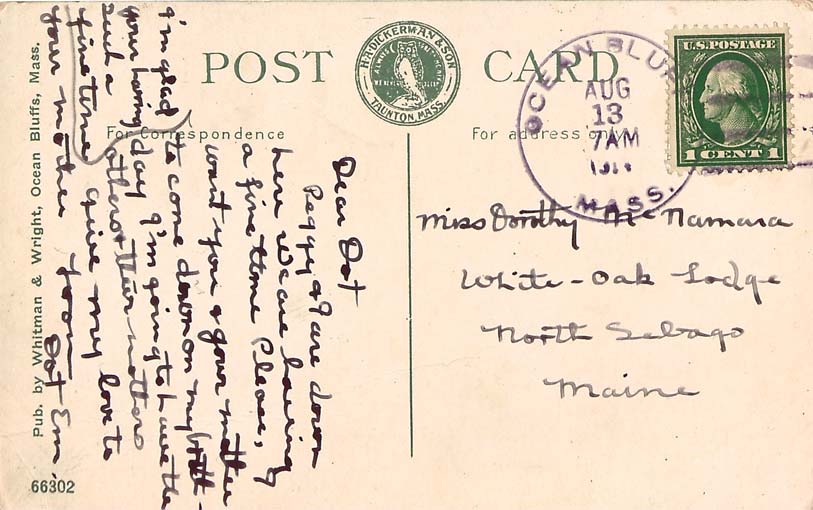 POST CARD
H.A. DICKERMAN & SON
TAUNTON, MASS.
For Correspondence
For address only
OCEAN BLUFF
AUG
13
7 AM
MASS.
U.S. POSTAGE
1 CENT 1
Miss Dorothy McNamara
White-Oak Lodge
North Sebago
Maine
Dear Dot
Peggy & I are down
here we are having
a fine time Please,
want you & your mother
to come down on my birth-
day I'm going to have the
others & their mothers
Give my love to
your mother from
Dot Em.
I'm glad
your having
such a
fine time
Pub. by Whitman & Wright, Ocean Bluffs, Mass.
66302